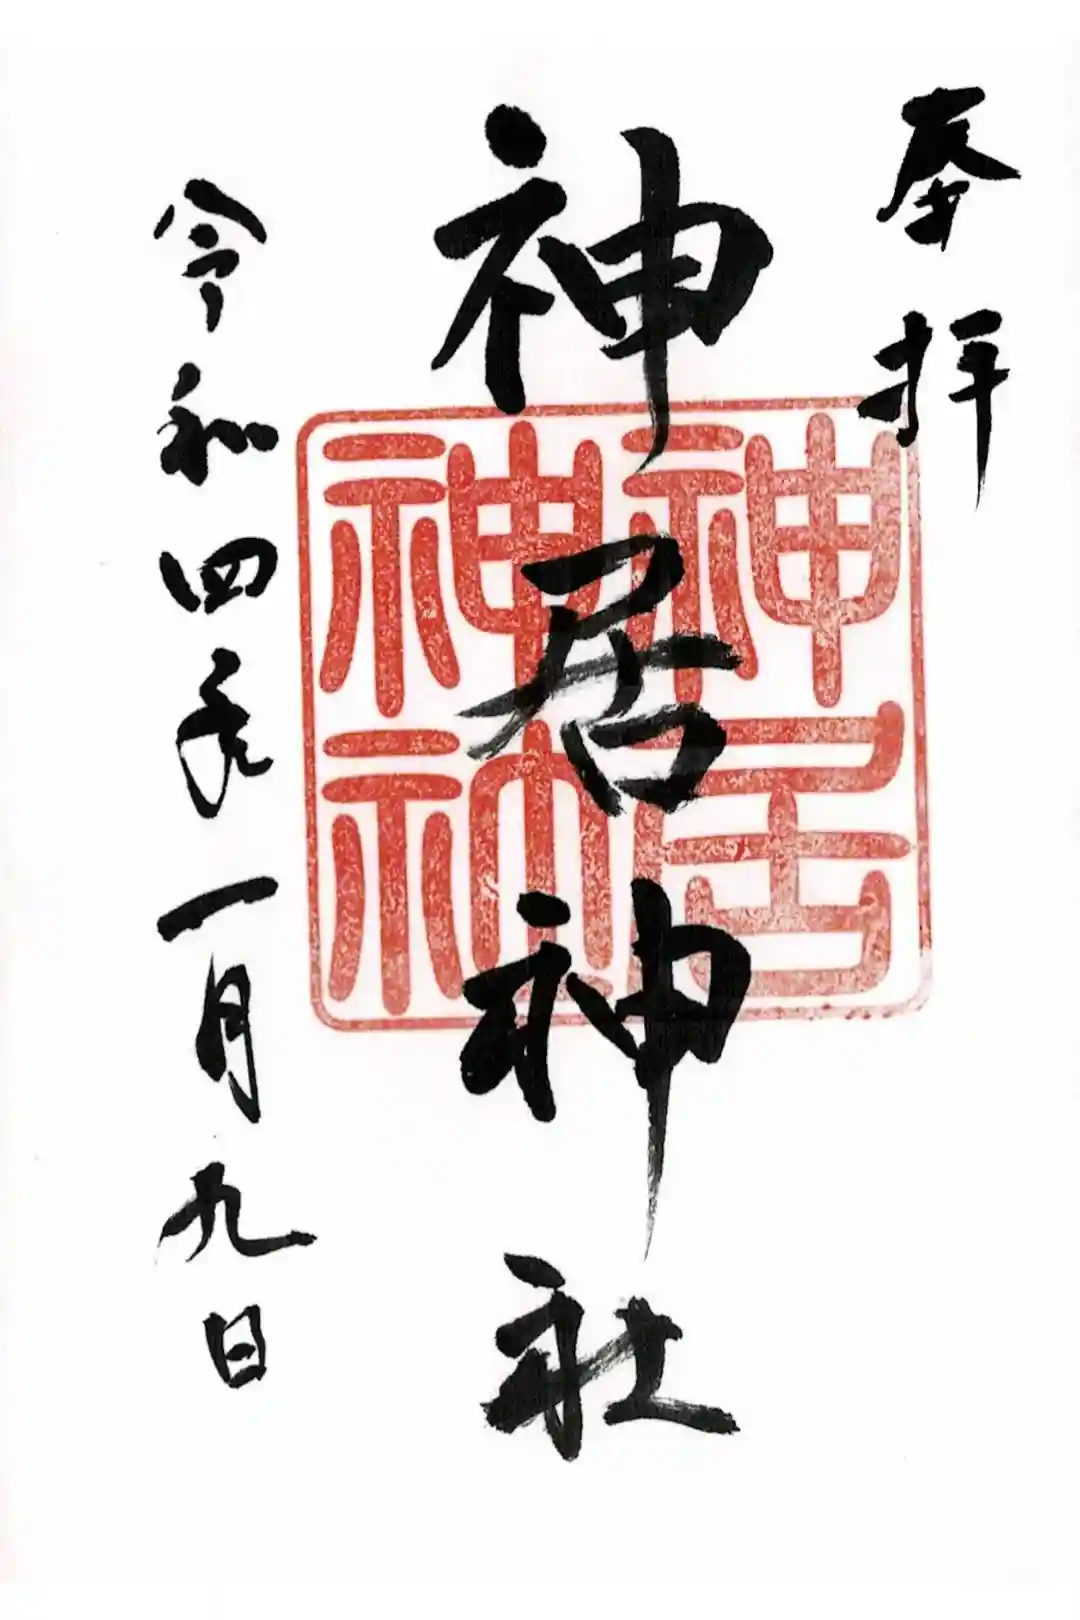 奉拝
神居神社
神居
神社
令和四年一月九日